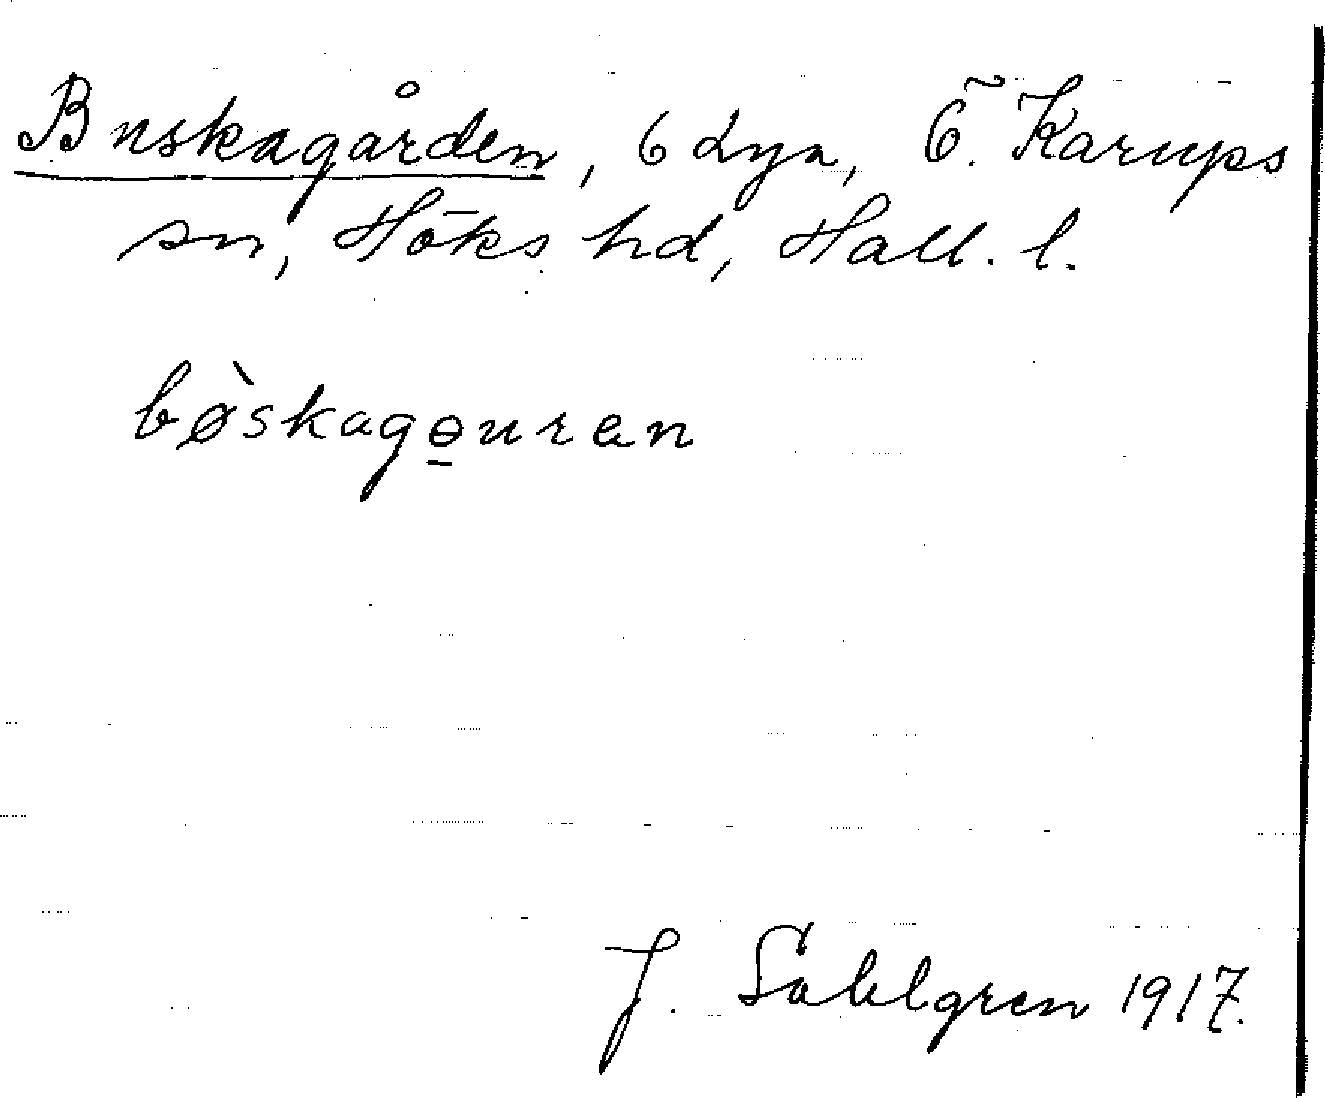 Buskagården, 6 Lya, Ö. Karups
sn, Höks hd, Hall. l.
bø̀skagɵ̠uran
J. Sahlgren 1917.